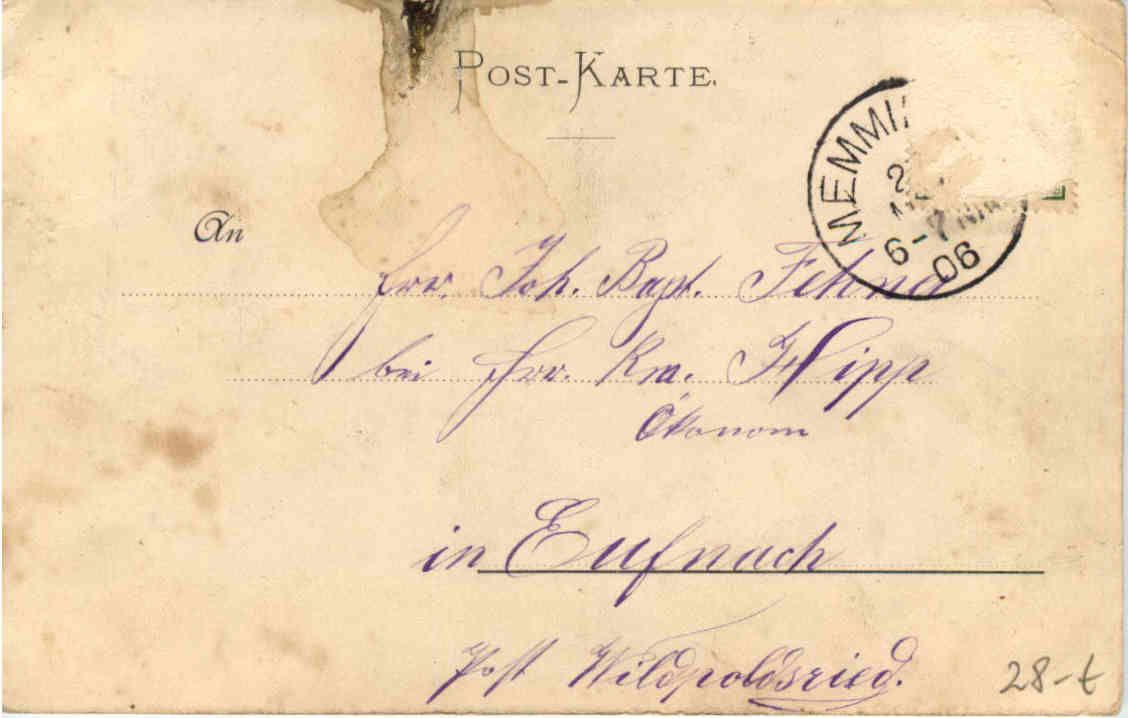 POST-KARTE.
MEMMI
2
6-7 NM
06
An
Hrr. Joh. Bapt. Fehna
bei Hrr. Hipp
Ökonom
in Eufnach
Post Wildpoldsried.
28-t